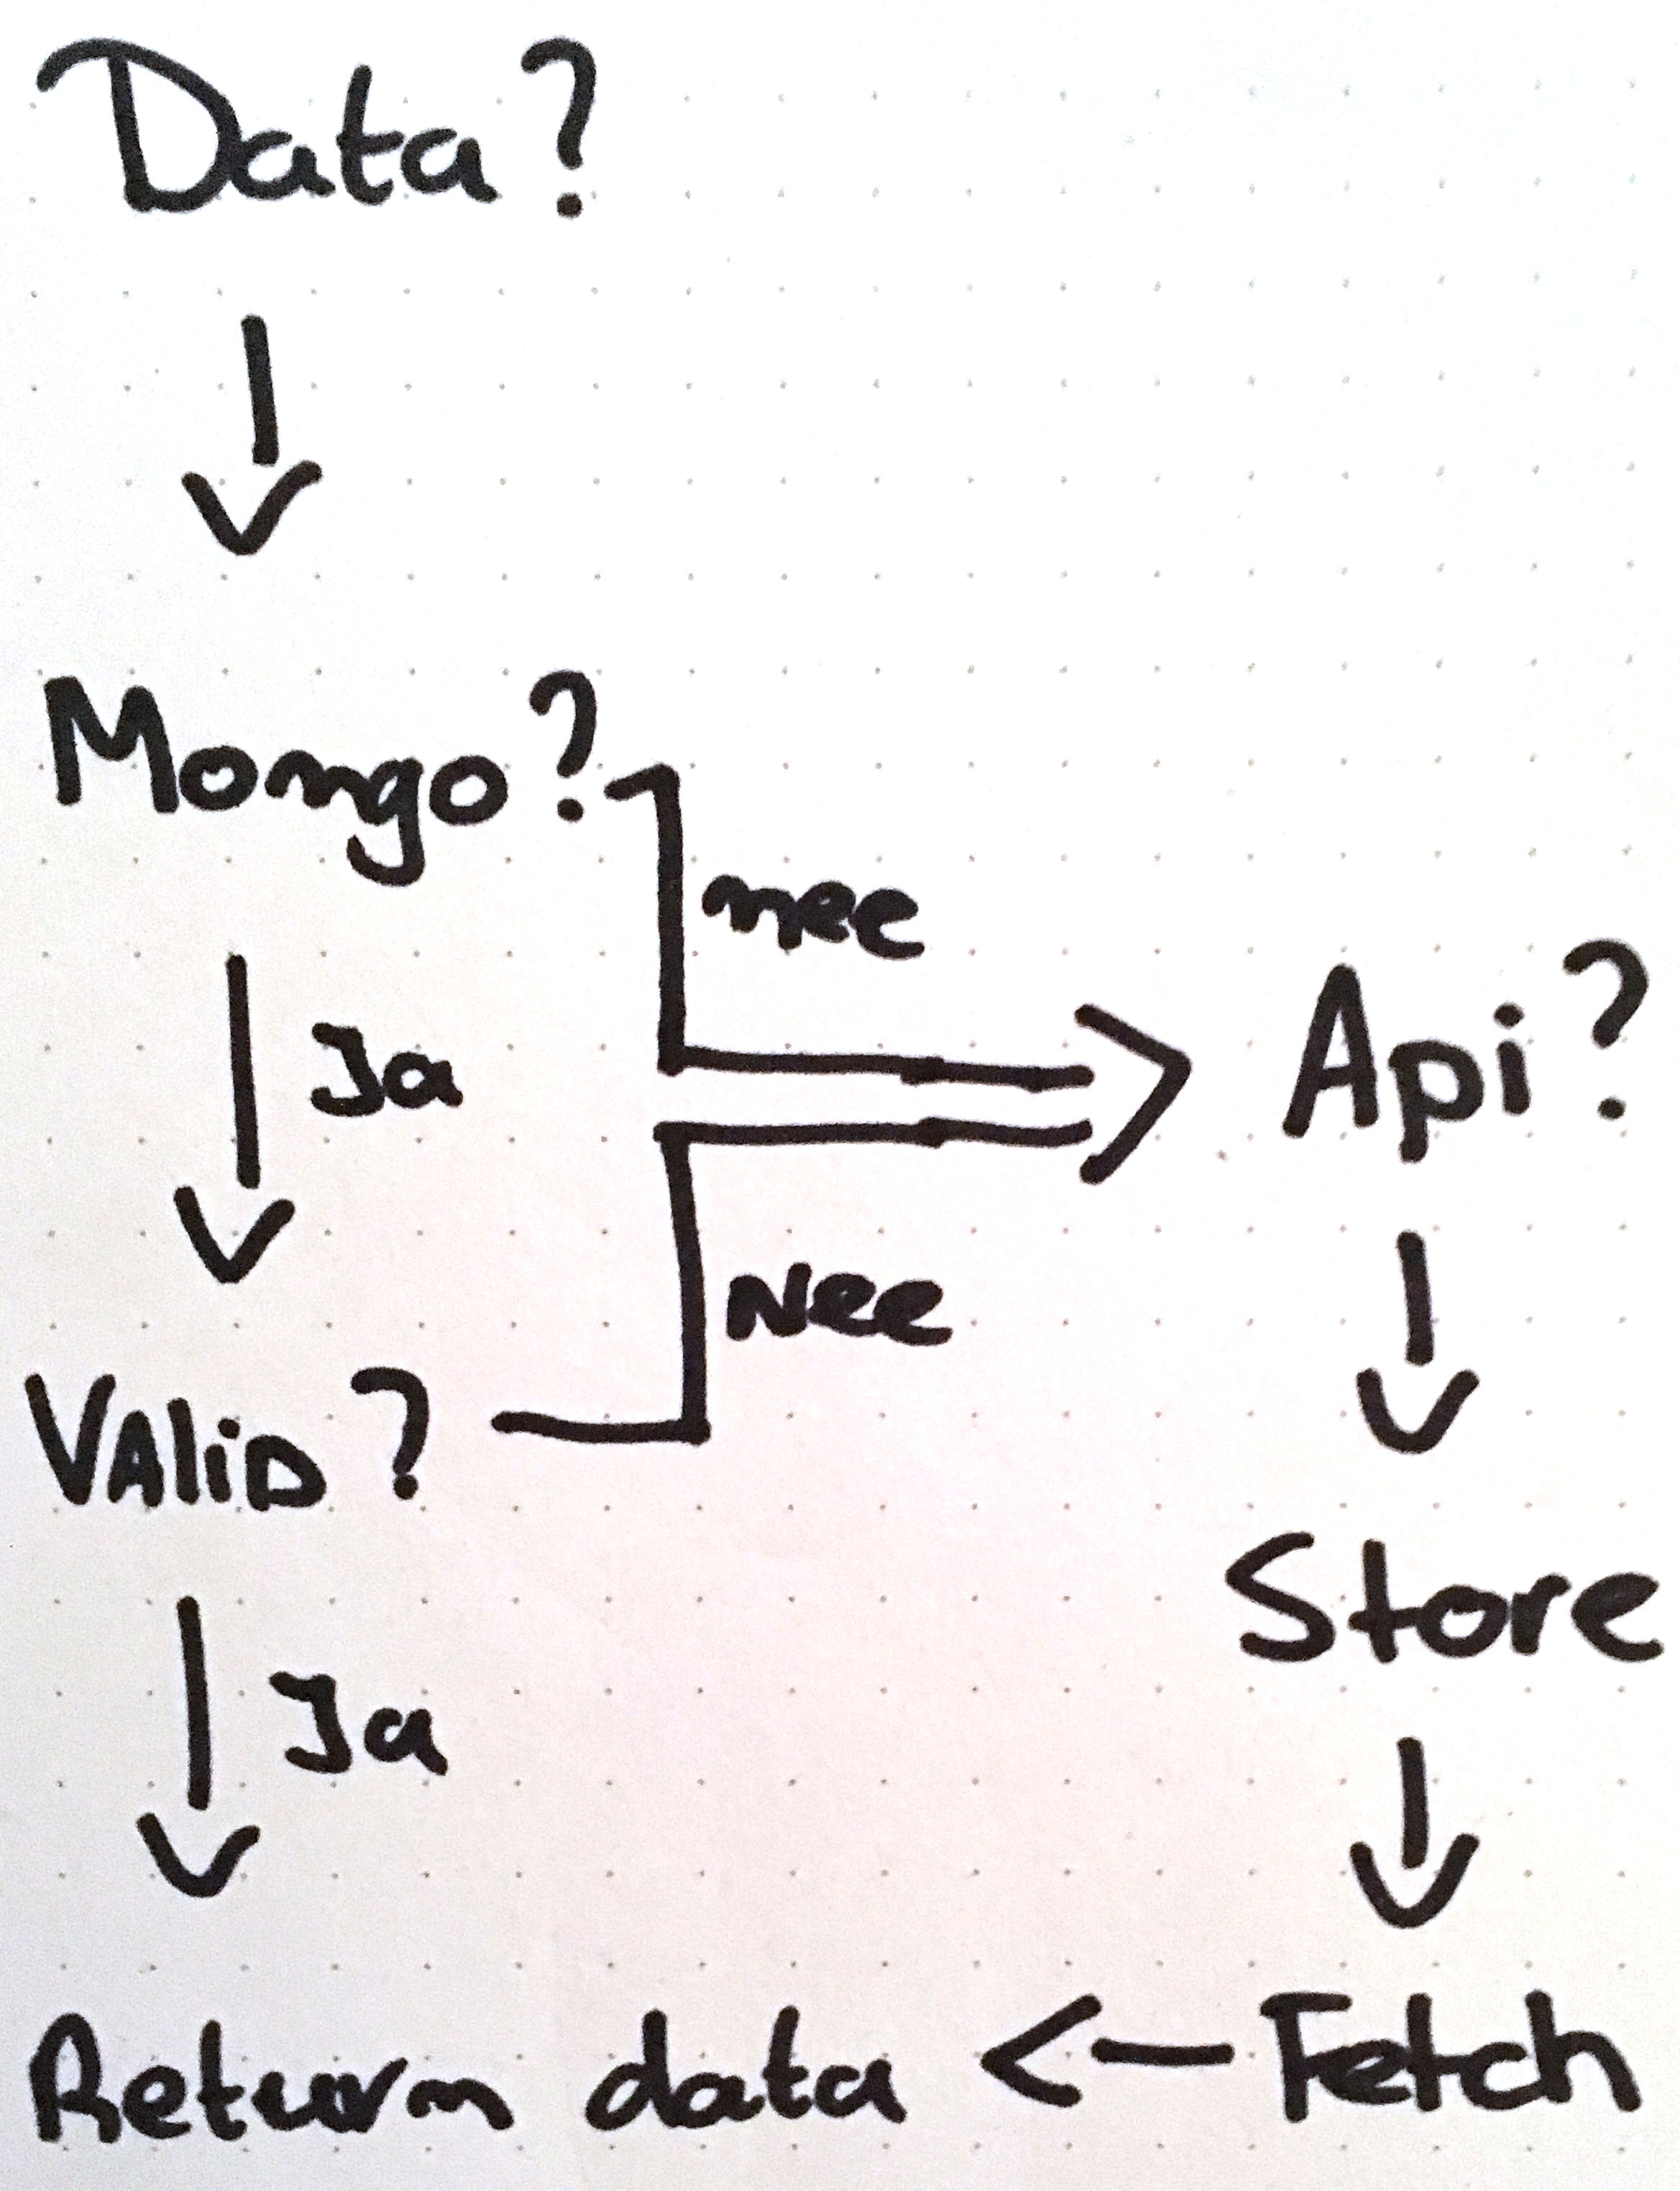 Data?
Mongo?
nee
Ja
Api?
Nee
VAliD?
Store
Ja
Return data
Fetch